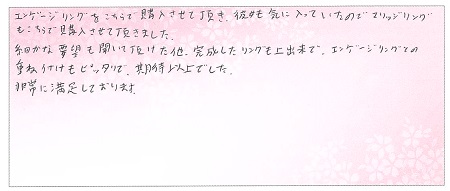 エンゲージリングをこちらで購入させて頂き、彼女も気に入っていたのでマリッジリング
もこちらで購入させて頂きました。
細かな要望も聞いて頂けた他、完成したリングも上出来で、エンゲージリングとの
重ね付けもピッタリで、期待以上でした。
非常に満足しております。